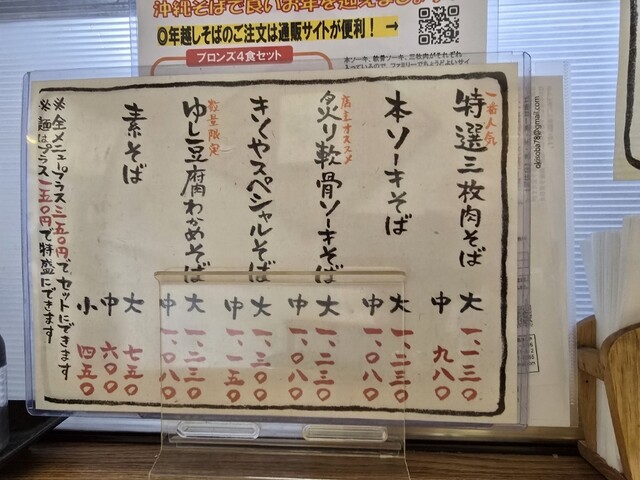 沖縄そばで良いお年を迎えましょう
◎年越しそばのご注文は通販サイトが便利！→
ブロンズ4食セット
本ソーキ、軟骨ソーキ、三枚肉がそれぞれ
okisoba78@gmail.com
一番人気
特選三枚肉そば
大 一、一三〇
中 九八〇
本ソーキそば
大 一、二三〇
中 一、〇八〇
店主オススメ
炙り軟骨ソーキそば
大 一、二三〇
中 一、〇八〇
きくやスペシャルそば
大 一、三〇〇
中 一、一五〇
数量限定
ゆし豆腐わかめそば
大 一、二三〇
中 一、〇八〇
素そば
大 七五〇
中 六〇〇
小 四五〇
※全メニュープラス二五〇円でセットにできます
※麺はプラス一五〇円で特盛にできます